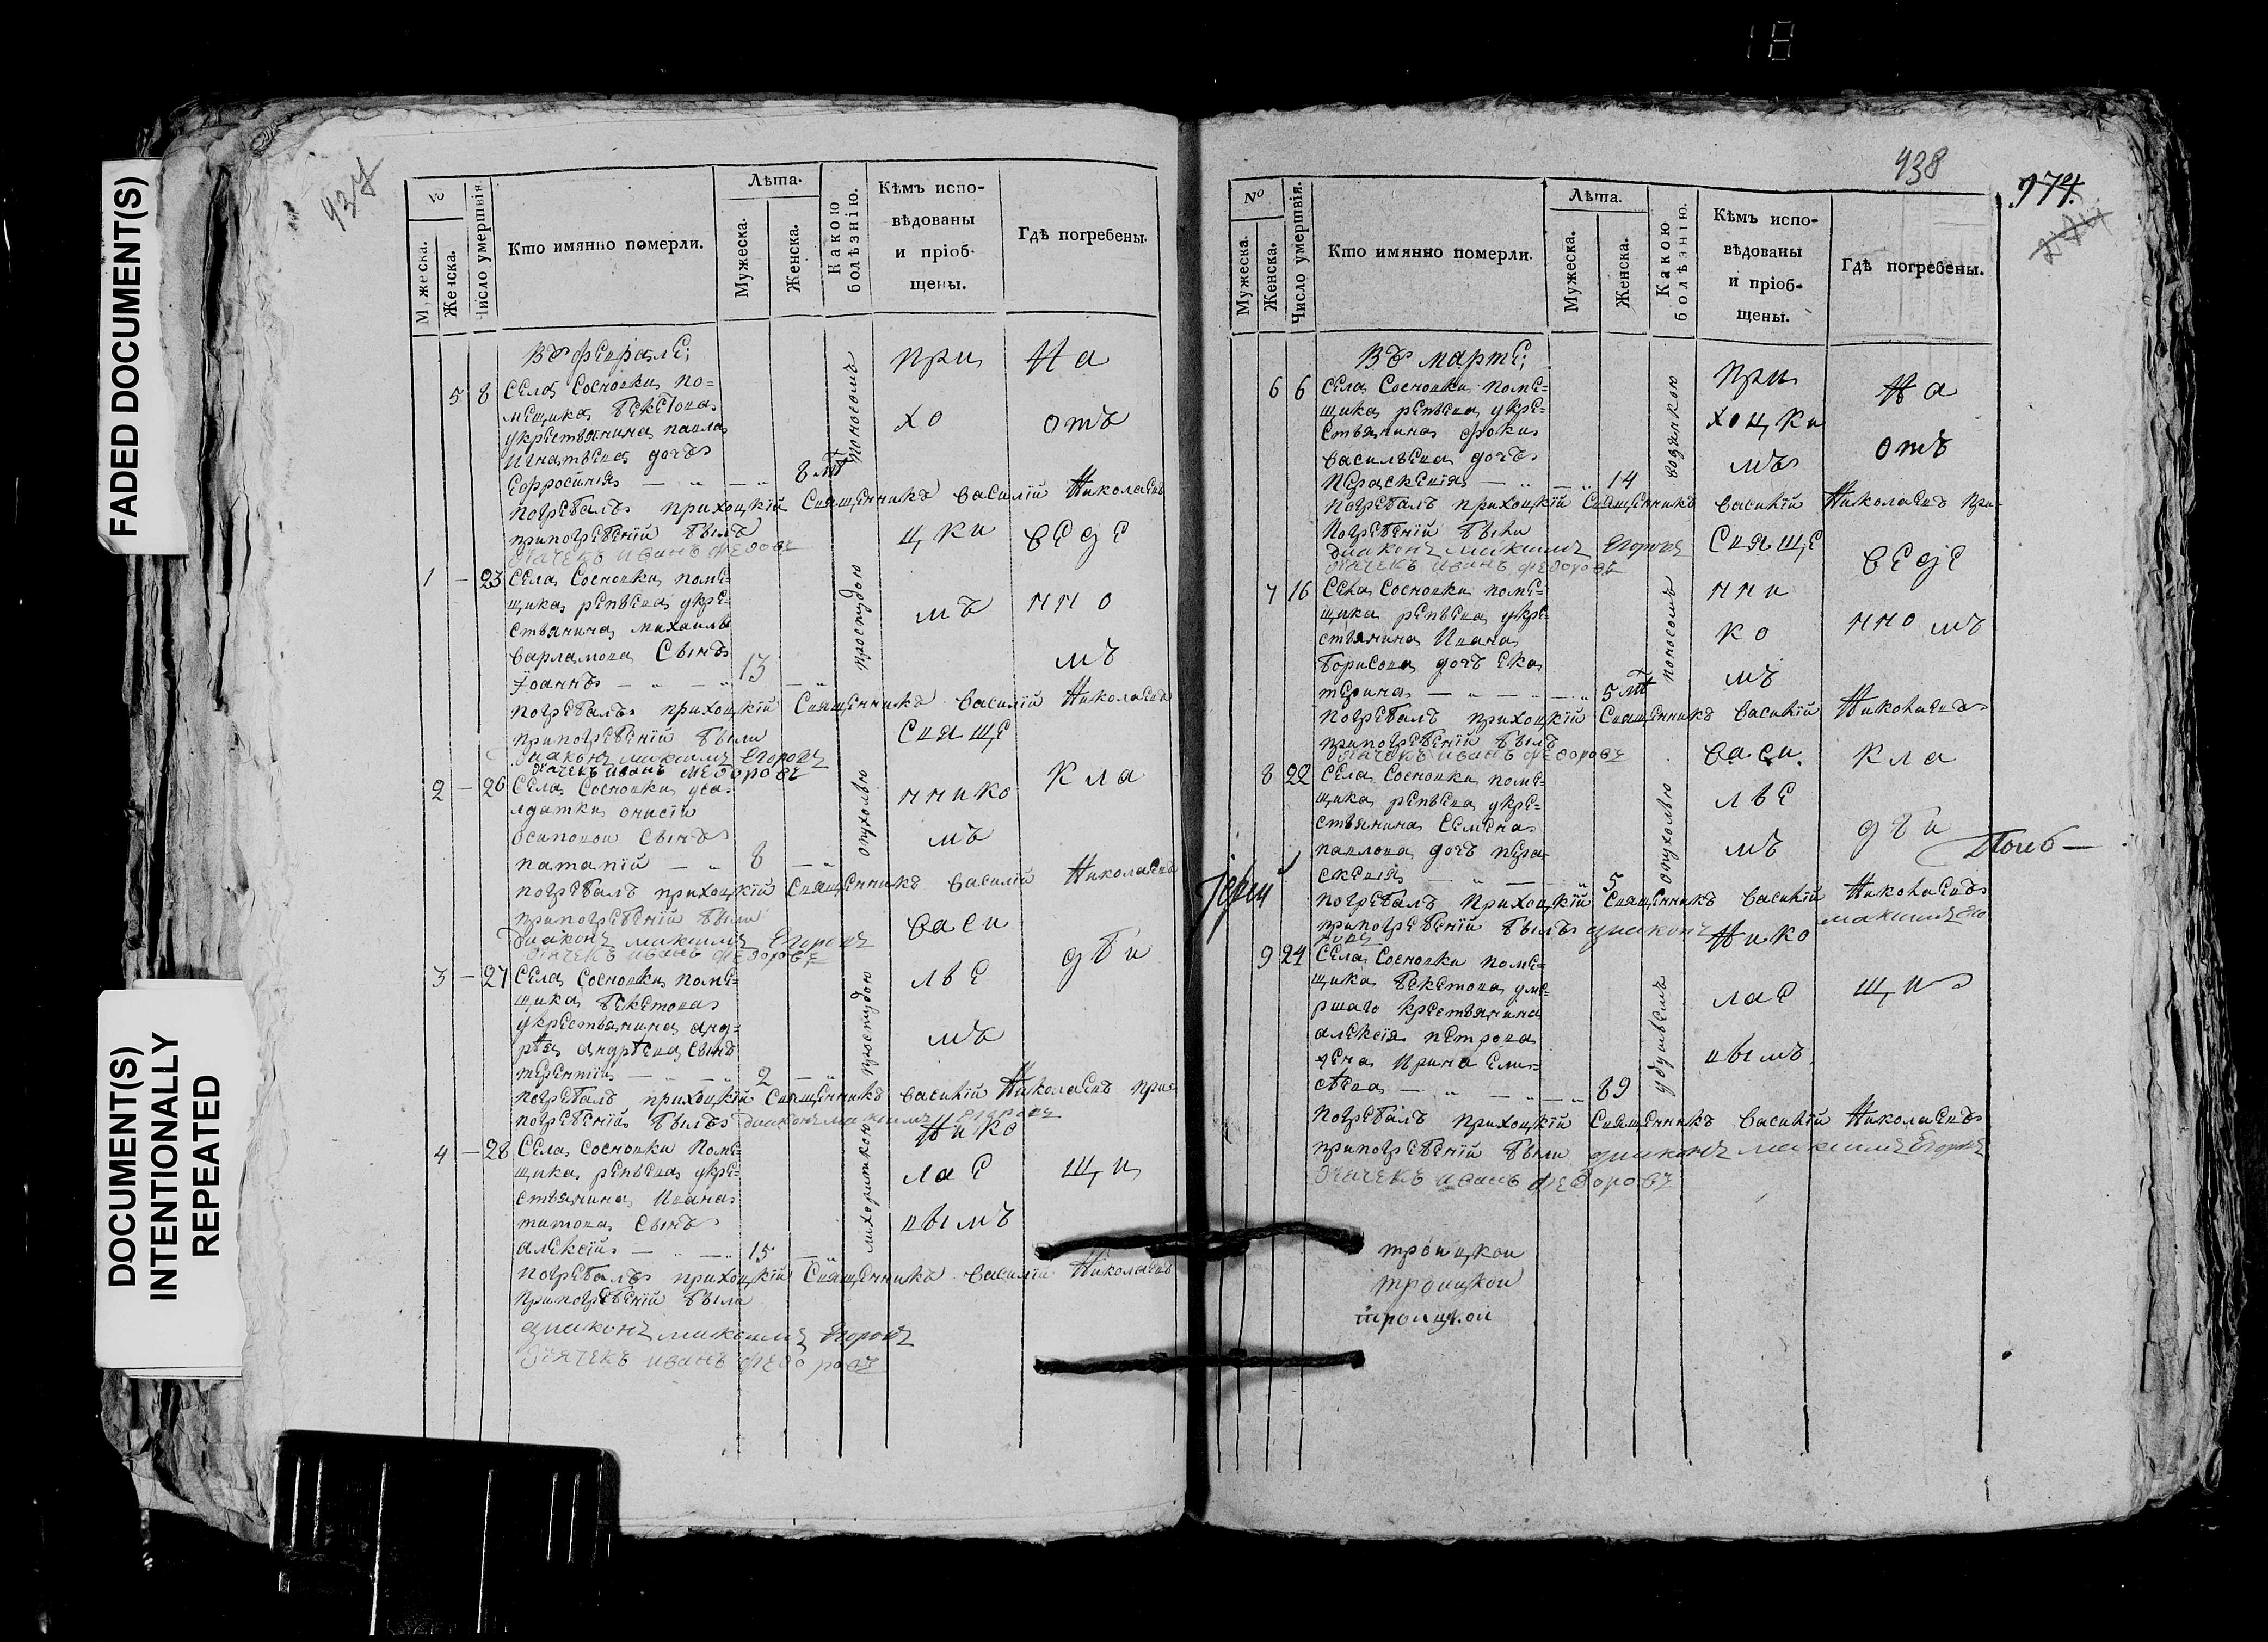 18
FADED DOCUMENT(S)
DOCUMENT(S)
INTENTIONALLY
REPEATED
437
№
Мужеска.
Женска.
Число умершвія.
Кто имянно померли.
Лѣта.
Мужеска.
Женска.
Какою
болѣзнію.
Кѣмъ испо-
вѣдованы
и пріоб-
щены.
Гдѣ погребены.
Въ феврале;
5 8 Села Сосновки по=
мещика бекетова
у крестьянина павла
Игнатьева дочь
Ефросиния — „ — „ 8 м
поносомъ
погребалъ приходцкій Священникъ Василій Николаевъ
припогребеній былъ
дьячекъ иванъ федовъ
1 — 23 Села Сосновки поме=
щика репьева у кре=
стьянина михаилы
варламова Сынъ
Іоаннъ — „ — „ 13 — „
простудою
погребалъ приходцкій Священникъ Василій Николаевъ
припогребеній были
диаконъ максимъ Егоровъ
дьячекъ иванъ федоровъ
2 — 26 Села Сосновки у са
лдатки онисіи
Осиповои Сынъ
патапій — „ 8 — „
опухолью
погребалъ приходцкій Священникъ Василій Николаевъ
припогребеній были
диаконъ максимъ Егоровъ
дьячекъ иванъ федоровъ
3 — 27 Села Сосновки поме=
щика бекетова
у крестьянина анд=
рѣя андрѣева Сынъ
терентій — „ — „ 2 — „
простудою
погребалъ приходцкій Священникъ Василій Николаевъ при=
погребеній былъ диаконъ максимъ Егоровъ
4 — 28 Села Сосновки поме=
щика репьева у кре=
стьянина Ивана
титова Сынъ
алексій — „ — „ 15 — „
лихораткою
погребалъ приходцкій Священникъ Василій Николаевъ
припогребеній были
диаконъ максимъ Егоровъ
дьячекъ иванъ федоровъ
при
хо
цки
мъ
Свяще
ннико
мъ
васи
лье
мъ
Нико
лае
вымъ
На
отъ
веде
нно
мъ
кла
дби
щи
438
974.
№
Мужеска.
Женска.
Число умершвія.
Кто имянно померли.
Лѣта.
Мужеска.
Женска.
Какою
болѣзнію.
Кѣмъ испо-
вѣдованы
и пріоб-
щены.
Гдѣ погребены.
Въ марте;
6 6 Села Сосновки поме=
щика репьева у кре=
стьянина фоки
васильева дочь
Пераскевія — „ — „ 14
водянкою
погребалъ приходцкій Священникъ Василій Николаевъ при
погребеній были
диаконъ максимъ Егоровъ
дьячекъ иванъ федоровъ
7 16 Села Сосновки поме=
щика репьева у кре
стьянина Ивана
борисова дочь Ека
терина — „ — „ — „ 5 м
поносомъ
погребалъ приходцкій Священникъ Василій Николаевъ
припогребеній былъ
дьячекъ иванъ федоровъ
8 22 Села Сосновки поме=
щика репьева у кре=
стьянина Семена
павлова дочь пера
скевія — „ — „ 5
опухолью
погребалъ приходцкій Священникъ Василій Николаевъ
припогребеній былъ диаконъ максимъ Его
ровъ
9 24 Села Сосновки поме=
щика бекетова уме=
ршаго крестьянина
алексія петрова
жена Ирина Ели=
сѣева — „ — „ — „ 89
удушьемъ
погребалъ приходцкій Священникъ Василій Николаевъ
припогребеній были диаконъ максимъ Егоровъ
дьячекъ иванъ федоровъ
при
ходцки
мъ
Свяще
нни
ко
мъ
васи
лье
мъ
Нико
лае
вымъ
На
отъ
веде
нномъ
кла
дби
щи
Іерей
троицкои
троицкои
троицкои